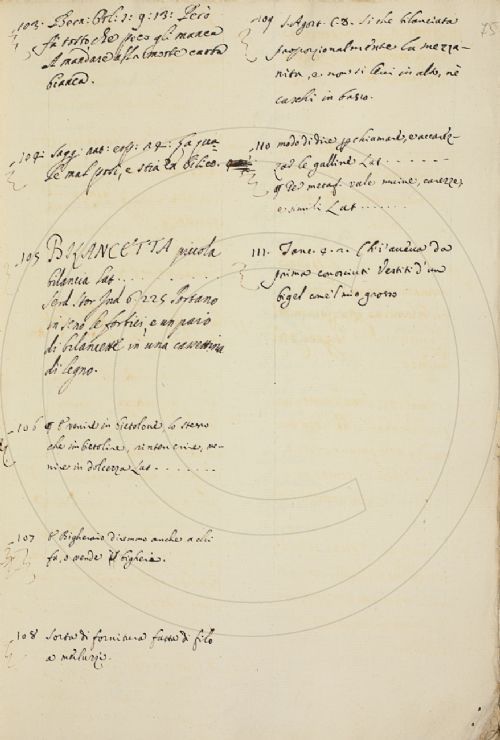 75
103. Bern: Orl: 2: 9: 13: Però
fa torto che poco gli manca
A mandare alla morte carta
bianca.
104. Sagg: nat: esp: 24: Fa qua-
le mal posi, e stia in bilico.
105 BILANCETTA piccola
bilancia Lat. . . . .
Serd. Stor. Ind. 6. 225. Portano
in seno le forbici, e un paio
di bilancette in una cassettina
di legno.
106 ¶ Venire in bietolone, lo stesso
che imbietolire, intenerire, ve-
nire in dolcezza Lat. . . . . . . .
107 E Bigheraio diremmo anche a chi
fa, o vende bighera.
108 Sorta di fornitura fatta di filo
a merluzzi.
109 S. Agost. C. D. Si che bilanciata
proporzionalmente la mezza-
nità, e non si levi in alto, nè
caschi in basso.
110 modo di dire per chiamare, e accarez-
zar le galline Lat. . . . . . .
¶ Per metaf. vale moine, carezze,
e simili Lat. . . . . . .
111. Tanc. 4. 2. Ch'i' aveva da
prima conosciuti Vestiti d'un
bigel com'l mio grosso